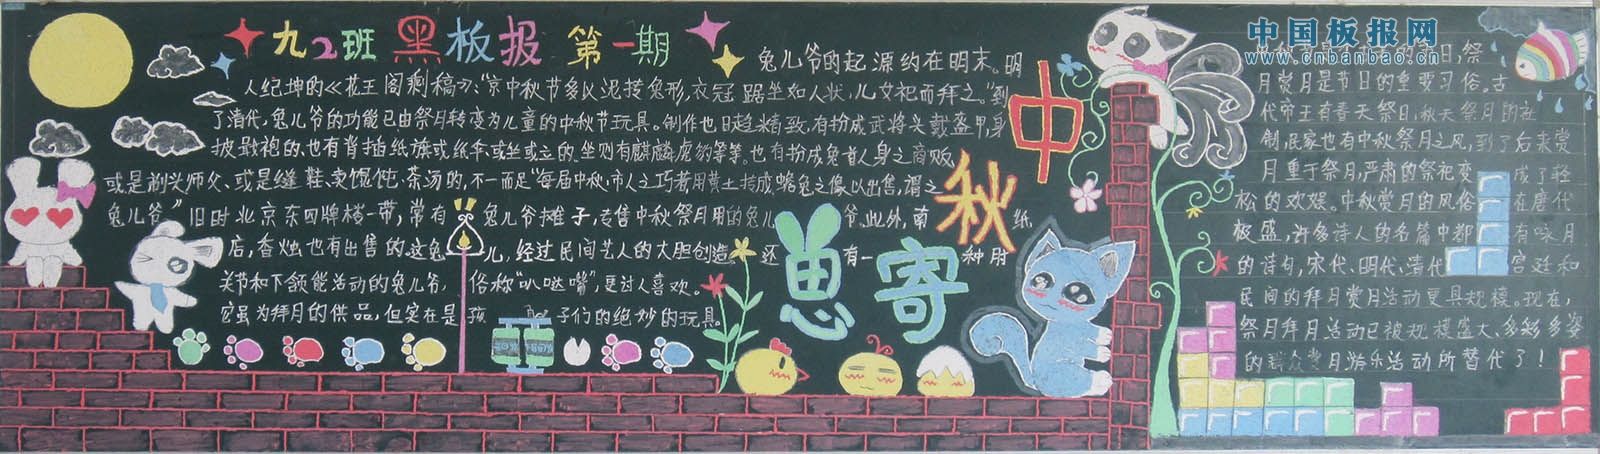 九2班黑板报 第一期
兔儿爷的起源约在明末。明
人纪坤的《花王阁剩稿》:"京中秋节多以泥抟兔形,衣冠踞坐如人状,儿女祀而拜之。"到
了清代,兔儿爷的功能已由祭月转变为儿童的中秋节玩具。制作也日趋精致,有扮成武将头戴盔甲,身
披戢袍的、也有背插纸旗或纸伞、或坐或立的。坐则有麒麟虎豹等等。也有扮成兔首人身之商贩
或是剃头师父、或是缝鞋、卖馄饨、茶汤的,不一而足"每届中秋,市人之巧者用黄土抟成蟾兔之像以出售,谓之
兔儿爷"旧时北京东四牌楼一带,常有兔儿爷摊子,专售中秋祭月用的兔儿爷。此外,南纸
店,香烛也有出售的。这兔儿,经过民间艺人的大胆创造,还有一种肘
关节和下颌能活动的兔儿爷,俗称"叭哒嘴",更讨人喜欢。
它虽为拜月的供品,但实在是孩子们的绝妙的玩具。
中秋
思寄
中国板报网
www.cnbanbao.cn
日,祭
月赏月是节日的重要习俗。古
代帝王有春天祭日,秋天祭月的社
制,民家也有中秋祭月之风,到了后来赏
月重于祭月,严肃的祭祀变成了轻
松的欢娱。中秋赏月的风俗在唐代
极盛,许多诗人的名篇中都有咏月
的诗句,宋代、明代、清代宫廷和
民间的拜月赏月活动更具规模。现在,
祭月拜月活动已被规模盛大、多彩多姿
的群众赏月游乐活动所替代了!